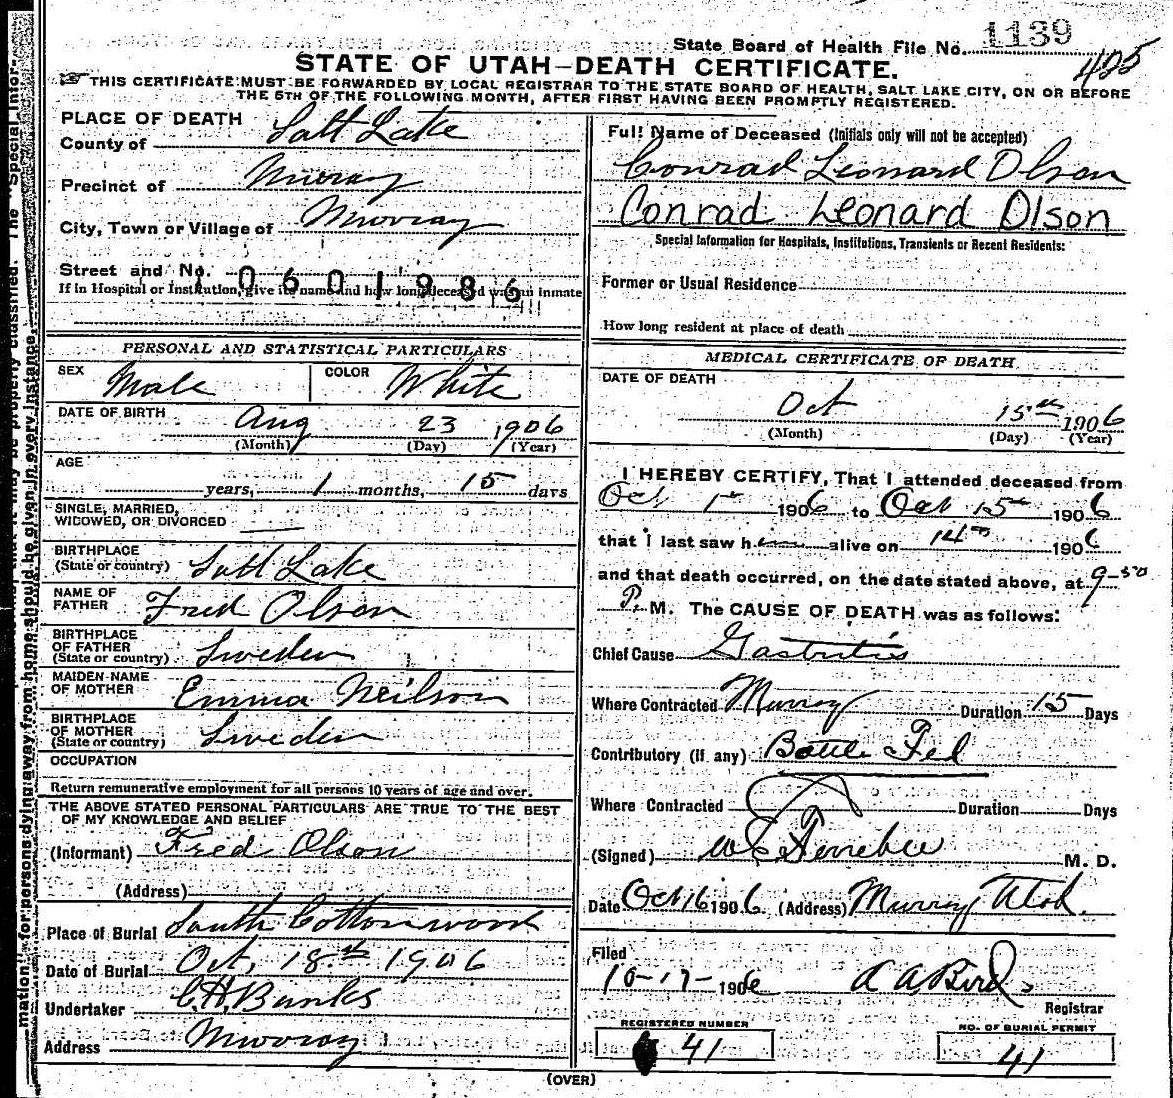 State Board of Health File No. 1139
425
STATE OF UTAH—DEATH CERTIFICATE.
THIS CERTIFICATE MUST BE FORWARDED BY LOCAL REGISTRAR TO THE STATE BOARD OF HEALTH, SALT LAKE CITY, ON OR BEFORE
THE 5TH OF THE FOLLOWING MONTH, AFTER FIRST HAVING BEEN PROMPTLY REGISTERED.
PLACE OF DEATH
County of Salt Lake
Precinct of Murray
City, Town or Village of Murray
Street and No.
10601986
If in Hospital or Institution, give its name and how long deceased was an inmate
PERSONAL AND STATISTICAL PARTICULARS
SEX Male COLOR White
DATE OF BIRTH Aug 23 1906
(Month) (Day) (Year)
AGE
years, 1 months, 15 days
SINGLE, MARRIED,
WIDOWED, OR DIVORCED
BIRTHPLACE
(State or country) Salt Lake
NAME OF
FATHER Fred Olson
BIRTHPLACE
OF FATHER
(State or country) Sweden
MAIDEN NAME
OF MOTHER Emma Neilson
BIRTHPLACE
OF MOTHER
(State or country) Sweden
OCCUPATION
Return remunerative employment for all persons 10 years of age and over.
THE ABOVE STATED PERSONAL PARTICULARS ARE TRUE TO THE BEST
OF MY KNOWLEDGE AND BELIEF
(Informant) Fred Olson
(Address)
Place of Burial South Cottonwood
Date of Burial Oct, 18th 1906
Undertaker C.H. Banks
Address Murray
Full Name of Deceased (Initials only will not be accepted)
Conrad Leonard Olson
Conrad Leonard Olson
Special Information for Hospitals, Institutions, Transients or Recent Residents:
Former or Usual Residence
How long resident at place of death
MEDICAL CERTIFICATE OF DEATH
DATE OF DEATH
Oct 15th 1906
(Month) (Day) (Year)
I HEREBY CERTIFY, That I attended deceased from
Oct 1st 1906 to Oct 15th 1906
that I last saw him alive on 14th 1906
and that death occurred, on the date stated above, at 9-50
P. M. The CAUSE OF DEATH was as follows:
Chief Cause Gastritis
Where Contracted Murray Duration 15 Days
Contributory (if any) Bottle Fed
Where Contracted Duration Days
(Signed) M. D.
Date Oct 16 1906 (Address) Murray Utah.
Filed
10-17-1906 A A Bird
Registrar
REGISTERED NUMBER
41
NO. OF BURIAL PERMIT
41
(OVER)
mation" for persons dying away from home should be given in every instance.
may be properly classified. The "Special Infor-